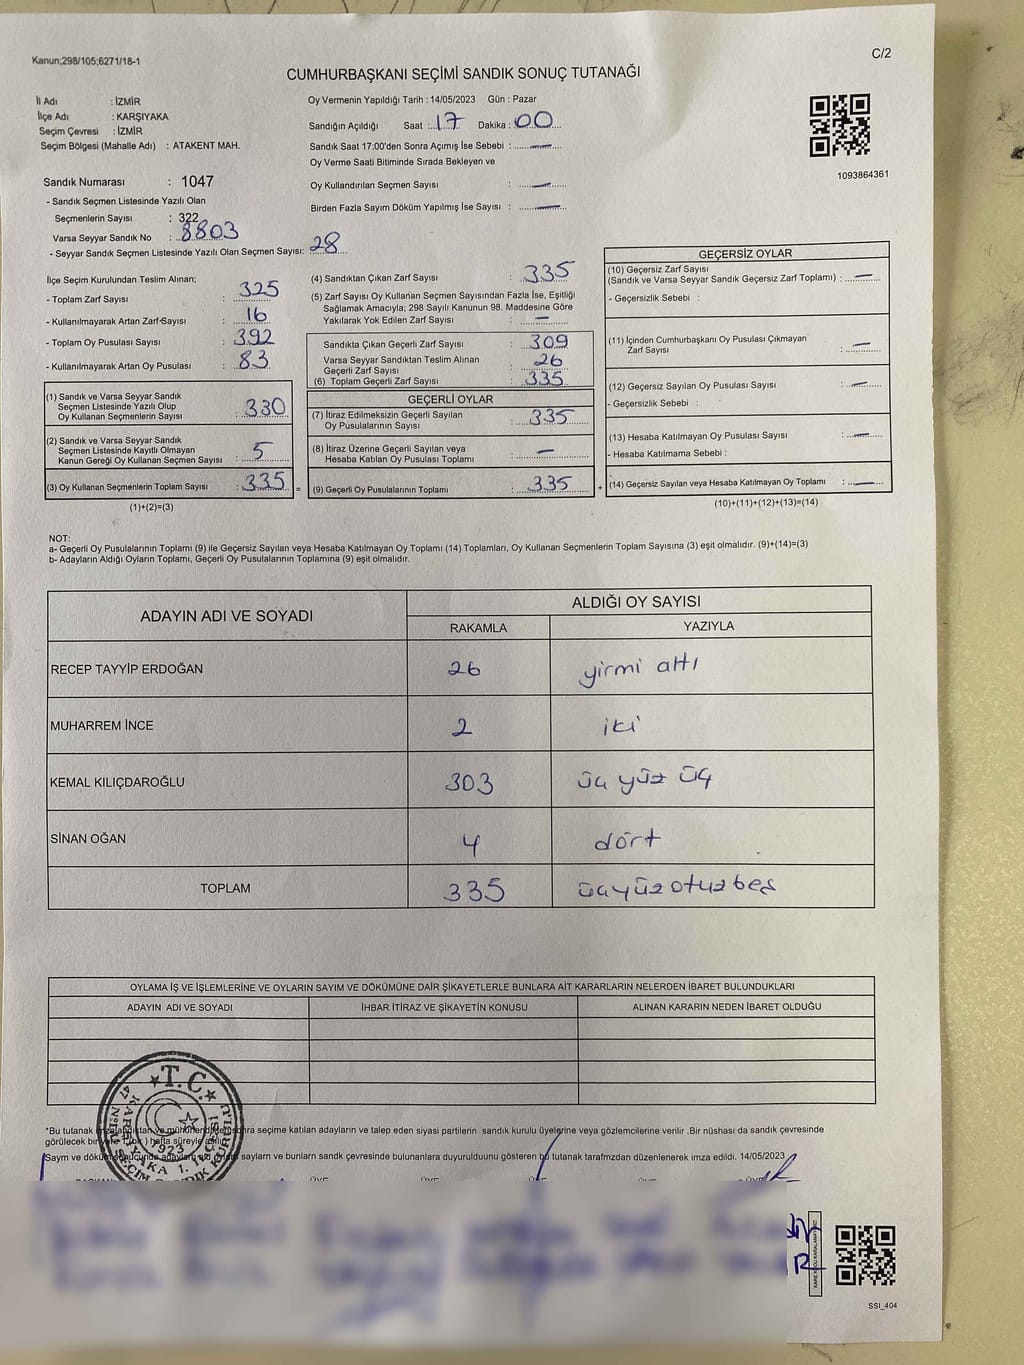 Kanun;298/105;6271/18-1
C/2
CUMHURBAŞKANI SEÇİMİ SANDIK SONUÇ TUTANAĞI
İl Adı : İZMİR
İlçe Adı : KARŞIYAKA
Seçim Çevresi : İZMİR
Seçim Bölgesi (Mahalle Adı) : ATAKENT MAH.
Oy Vermenin Yapıldığı Tarih : 14/05/2023 Gün : Pazar
Sandığın Açıldığı Saat : 17 Dakika : 00
Sandık Saat 17:00'den Sonra Açımış İse Sebebi : —
Oy Verme Saati Bitiminde Sırada Bekleyen ve
Oy Kullandırılan Seçmen Sayısı : —
Birden Fazla Sayım Döküm Yapılmış İse Sayısı : —
1093864361
Sandık Numarası : 1047
- Sandık Seçmen Listesinde Yazılı Olan
Seçmenlerin Sayısı : 322
Varsa Seyyar Sandık No : 8803
- Seyyar Sandık Seçmen Listesinde Yazılı Olan Seçmen Sayısı: 28
İlçe Seçim Kurulundan Teslim Alınan;
- Toplam Zarf Sayısı : 325
- Kullanılmayarak Artan Zarf Sayısı : 16
- Toplam Oy Pusulası Sayısı : 392
- Kullanılmayarak Artan Oy Pusulası : 83
(1) Sandık ve Varsa Seyyar Sandık
Seçmen Listesinde Yazılı Olup
Oy Kullanan Seçmenlerin Sayısı : 330
(2) Sandık ve Varsa Seyyar Sandık
Seçmen Listesinde Kayıtlı Olmayan
Kanun Gereği Oy Kullanan Seçmen Sayısı : 5
(3) Oy Kullanan Seçmenlerin Toplam Sayısı : 335 =
(1)+(2)=(3)
(4) Sandıktan Çıkan Zarf Sayısı : 335
(5) Zarf Sayısı Oy Kullanan Seçmen Sayısından Fazla İse, Eşitliği
Sağlamak Amacıyla; 298 Sayılı Kanunun 98. Maddesine Göre
Yakılarak Yok Edilen Zarf Sayısı : —
Sandıkta Çıkan Geçerli Zarf Sayısı : 309
Varsa Seyyar Sandıktan Teslim Alınan
Geçerli Zarf Sayısı : 26
(6) Toplam Geçerli Zarf Sayısı : 335
GEÇERLİ OYLAR
(7) İtiraz Edilmeksizin Geçerli Sayılan
Oy Pusulalarının Sayısı : 335
(8) İtiraz Üzerine Geçerli Sayılan veya
Hesaba Katılan Oy Pusulası Toplamı : —
(9) Geçerli Oy Pusulalarının Toplamı : 335 +
GEÇERSİZ OYLAR
(10) Geçersiz Zarf Sayısı
(Sandık ve Varsa Seyyar Sandık Geçersiz Zarf Toplamı) : —
- Geçersizlik Sebebi :
(11) İçinden Cumhurbaşkanı Oy Pusulası Çıkmayan
Zarf Sayısı : —
(12) Geçersiz Sayılan Oy Pusulası Sayısı : —
- Geçersizlik Sebebi :
(13) Hesaba Katılmayan Oy Pusulası Sayısı : —
- Hesaba Katılmama Sebebi :
(14) Geçersiz Sayılan veya Hesaba Katılmayan Oy Toplamı : —
(10)+(11)+(12)+(13)=(14)
NOT:
a- Geçerli Oy Pusulalarının Toplamı (9) ile Geçersiz Sayılan veya Hesaba Katılmayan Oy Toplamı (14) Toplamları, Oy Kullanan Seçmenlerin Toplam Sayısına (3) eşit olmalıdır. (9)+(14)=(3)
b- Adayların Aldığı Oyların Toplamı, Geçerli Oy Pusulalarının Toplamına (9) eşit olmalıdır.
ADAYIN ADI VE SOYADI
ALDIĞI OY SAYISI
RAKAMLA YAZIYLA
RECEP TAYYİP ERDOĞAN 26 yirmi altı
MUHARREM İNCE 2 iki
KEMAL KILIÇDAROĞLU 303 üç yüz üç
SİNAN OĞAN 4 dört
TOPLAM 335 üçyüzotuzbeş
OYLAMA İŞ VE İŞLEMLERİNE VE OYLARIN SAYIM VE DÖKÜMÜNE DAİR ŞİKAYETLERLE BUNLARA AİT KARARLARIN NELERDEN İBARET BULUNDUKLARI
ADAYIN ADI VE SOYADI İHBAR İTİRAZ VE ŞİKAYETİN KONUSU ALINAN KARARIN NEDEN İBARET OLDUĞU
T.C.
1923
*Bu tutanak seçime katılan adayların ve talep eden siyasi partilerin sandık kurulu üyelerine veya gözlemcilerine verilir .Bir nüshası da sandık çevresinde
görülecek bir hafta süreyle
Sayım ve döküm saylarm ve bunlarn sandk çevresinde bulunanlara duyurulduunu gösteren bu tutanak tarafmzdan düzenlenerek imza edildi. 14/05/2023
SSI_404